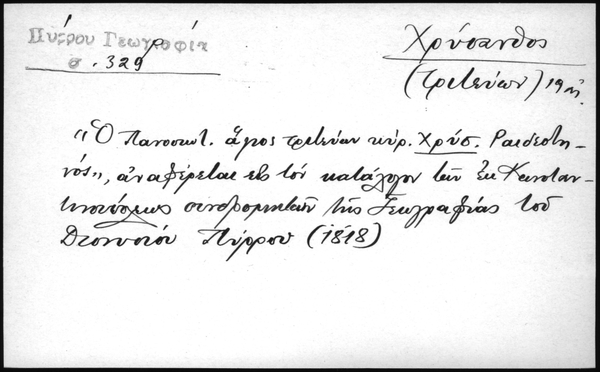 Πύρρου Γεωγραφία
σ. 329
Χρύσανθος
(τριτεύων) 19 αἰ.
«Ὁ Πανοσιωτ. ἅγιος τριτεύων κύρ. Χρύσ. Ραιδεστη-
νός», ἀναφέρεται εἰς τόν κατάλογον τῶν ἐκ Κωνσταν-
τινουπόλεως συνδρομητῶν τῆς Γεωγραφίας τοῦ
Διονυσίου Πύρρου (1818)